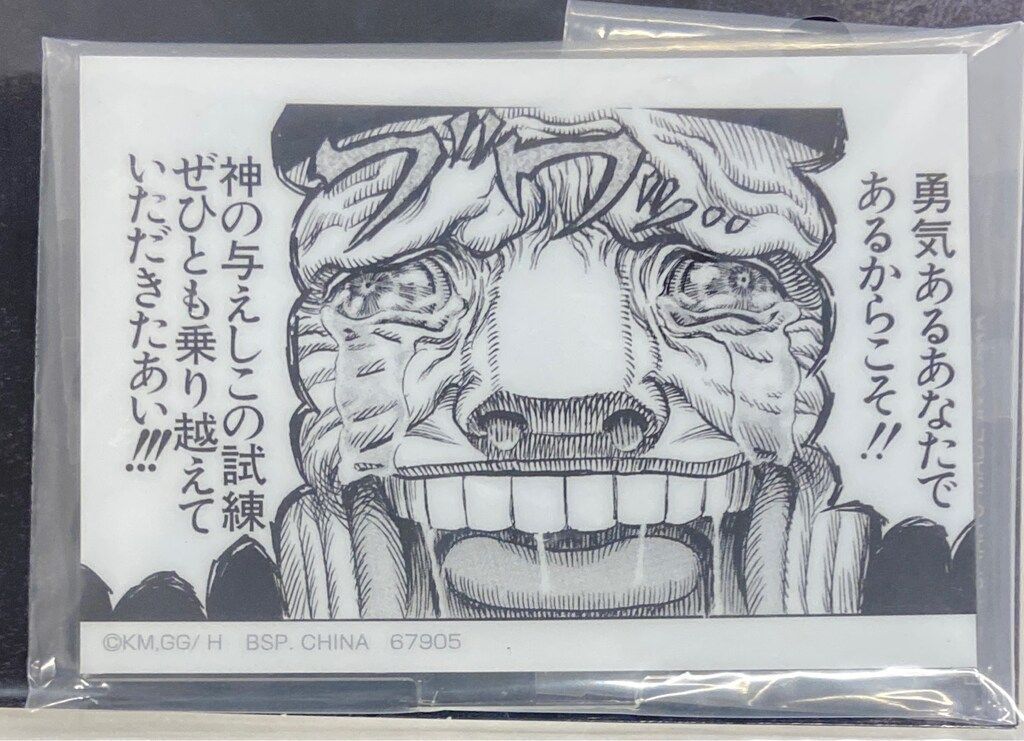 勇気あるあなたで
あるからこそ!!
ブワッ
神の与えしこの試練
ぜひとも乗り越えて
いただきたあい!!!
©KM,GG/ H BSP. CHINA 67905